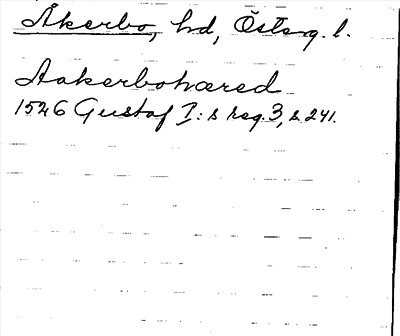 Åkerbo, hd, Österg. l.
Aakerbohæred
1526 Gustaf I:s reg. 3, s 241.